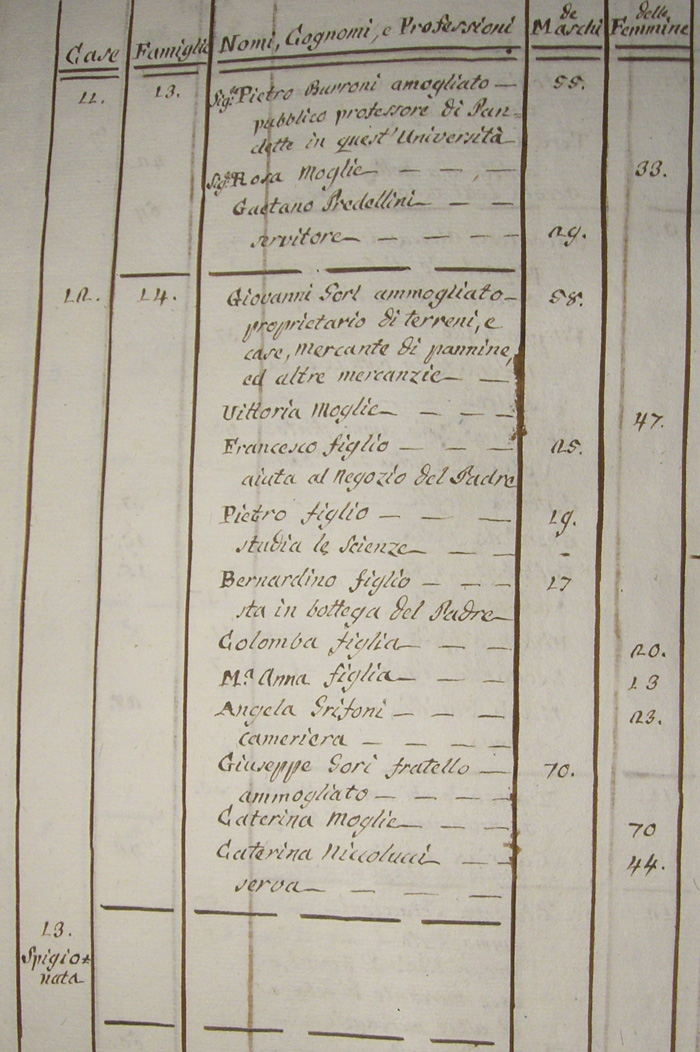 Case Famiglie Nomi, Cognomi, e Professioni de Maschi delle Femmine
11. 13. Sigr. Pietro Burroni amogliato — 55.
pubblico professore di Pan=
dette in quest' Università
Siga. Rosa Moglie — — — 33.
Gaetano Predellini — —
servitore — — — — 29.
12. 14. Giovanni Gori ammogliato — 58.
proprietario di terreni, e
case, mercante di pannine,
ed altre mercanzie — —
Vittoria Moglie — — — — 47.
Francesco figlio — — — 25.
aiuta al Negozio del Padre
Pietro figlio — — — 19.
studia le Scienze — — — -
Bernardino figlio — — — 17
sta in bottega del Padre —
Colomba figlia — — — 20.
Ma. Anna figlia — — — 13
Angela Grifoni — — — 23.
cameriera — — — —
Giuseppe Gori fratello — 70.
ammogliato — — — —
Caterina Moglie — — — 70
Caterina Niccolucci — — 44.
serva — — — —
13.
Spigio=
nata